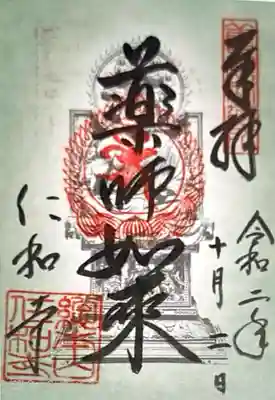 奉拝
令和二年
十月二日
薬師如来
仁和寺
總本山
仁和寺